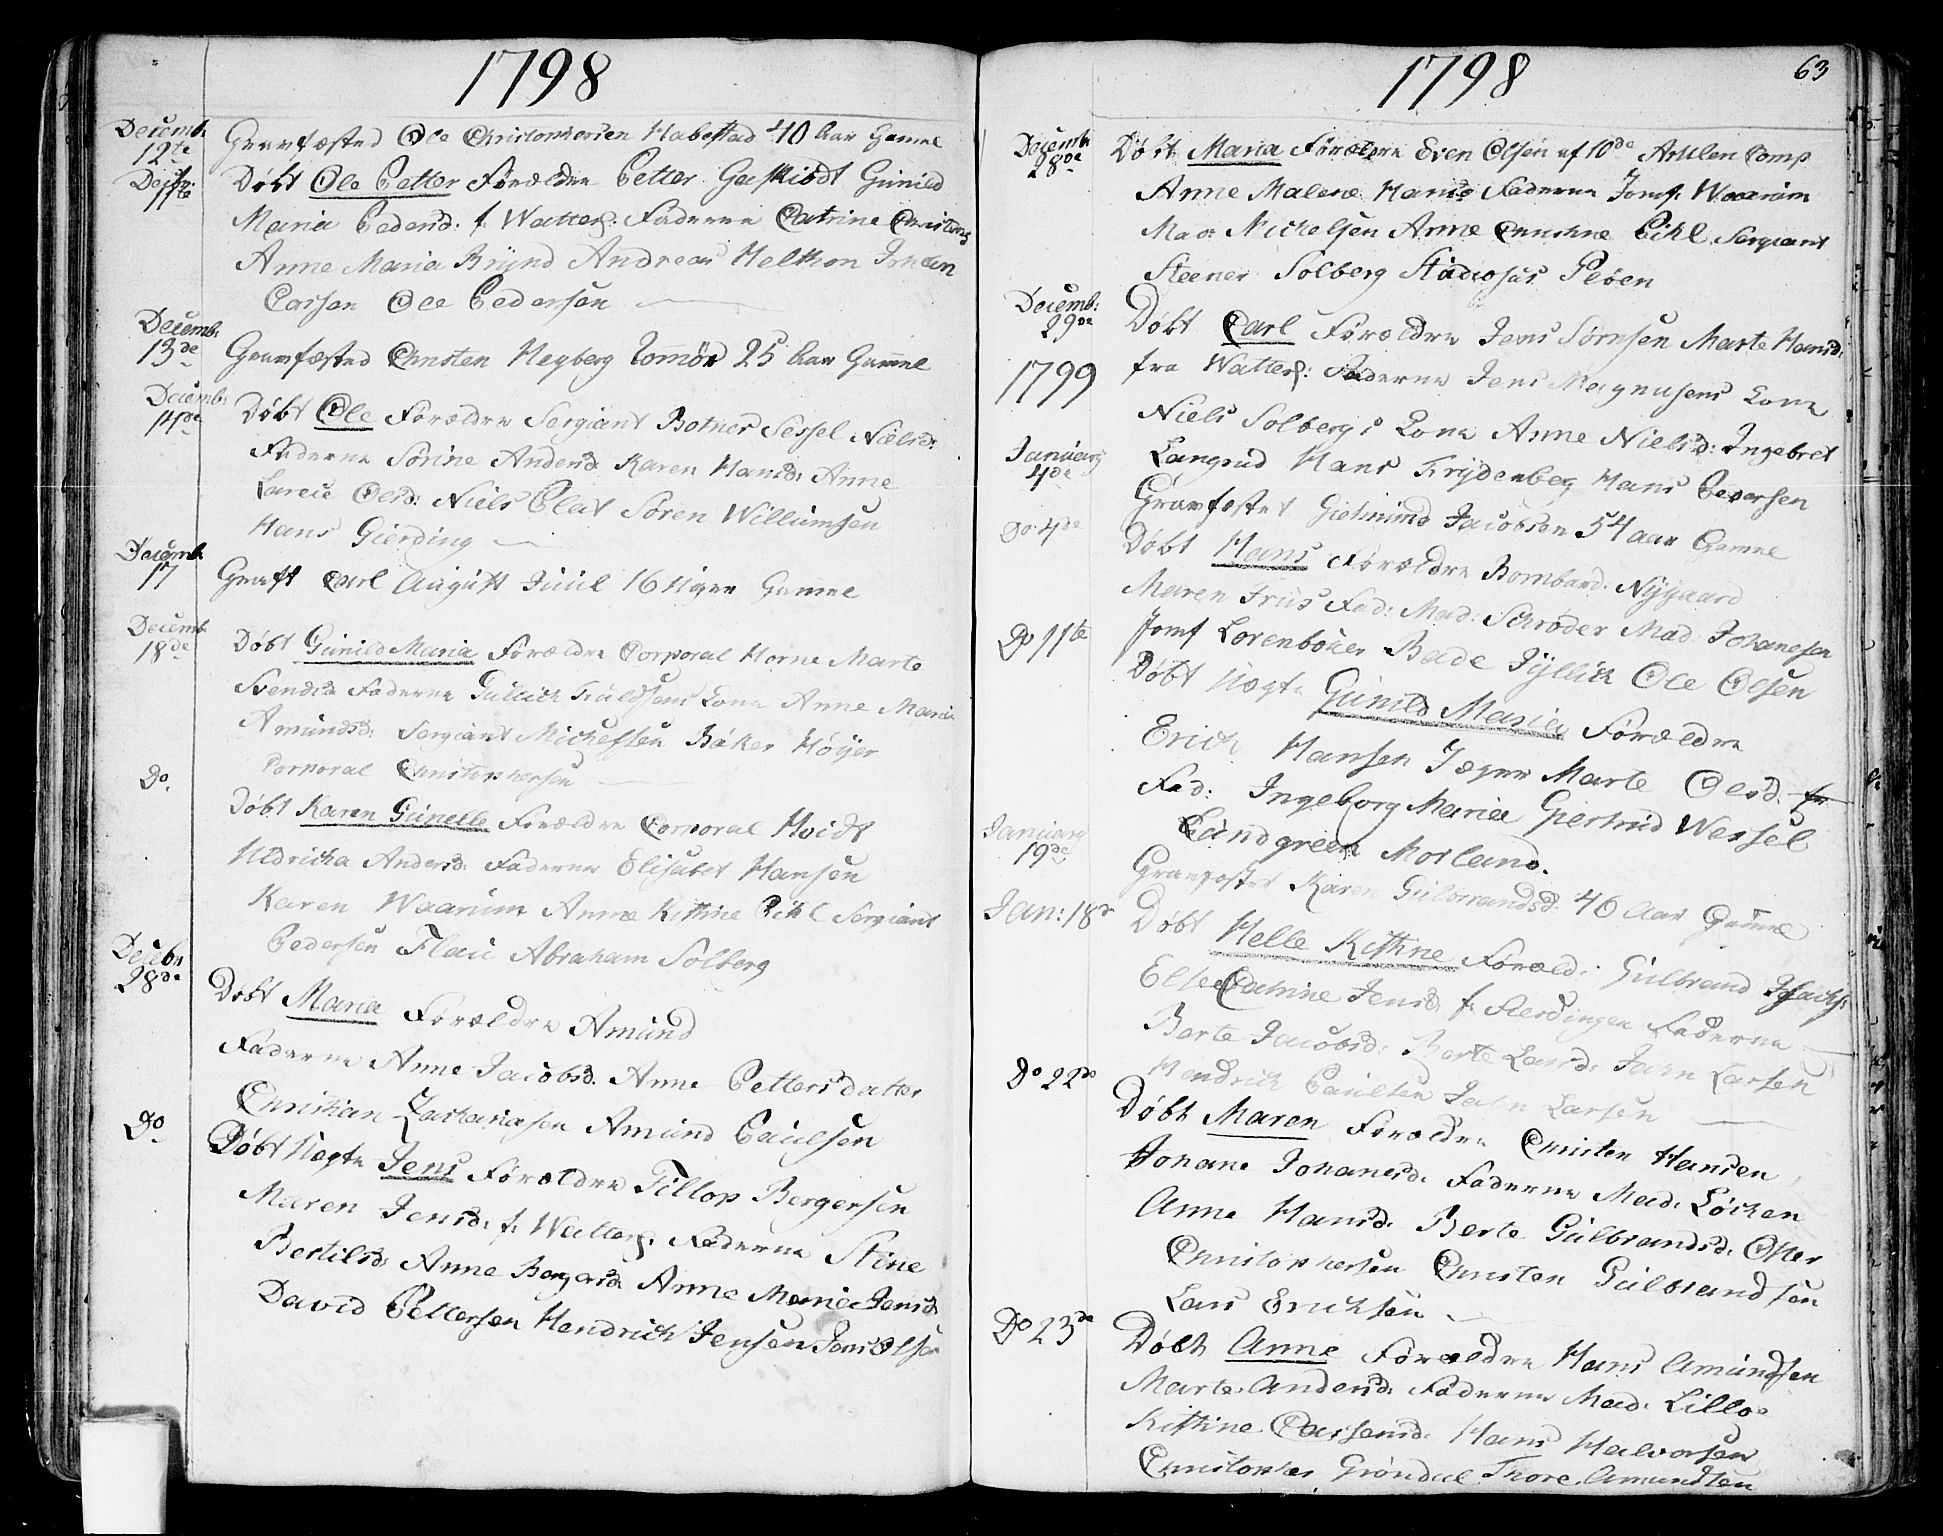 1798
Decemb. 12te Gravfæsted Ole Christophersen Habestad 40 Aar Gamel
Decbr: 11te Døbt Ole Petter Forældre Petter Gunild
Maria Peders: f. Watterf: Faderne Catrine
Anne Maria Andreas
Ole Pedersen
Decemb: 13de Gravfæsted Christen Hegberg 25 Aar Gamel
Decemb: 14de Døbt Ole Forældre Sergiant Botner Sessel Nielsd:
Faderne Sørine Andersd. Karen Hansd: Anne
Olesd: Niels Søren Willumsen
Hans Gierding
Decemb. 17 Graft Carl August Juul 16 Uger Gamel
Decemb 18de Døbt Gunild Maria Forældre Corporal Horne Marte
Svendsd. Faderne Kona Anne Maria
Amundsd: Sergiant Michelsen Bøker Høyer
Corporal Christophersen
Do. Døbt Karen Gunelle Forældre Corporal Hvidt
Uldricka Andersd. Faderne Elisabet Hansen
Karen Waarum Anne Kistine Pihl Sergiant
Pedersen Abraham Solberg
Decbr 28de Døbt Maria Forældre Amund
Faderne Anne Jacobsd. Anne Pettersdatter
Christian Zachariasen Amund Paulsen
Do Døbt Uægte Jens Forældre Tillop Bergersen
Maren Jensd. f. Watterf. Faderne Stine
Bertilsd: Anne Bergersd. Anne Maria Jensd.
David Pettersen Hendrich Jensen Jens Olsen
1798 63
Decemb 28de Døbt Maria Forældre Even Olsen af 10de Comp
Anne Malene Hansd Faderne Jomf. Waarum
Mad. Michelsen Anne Christine Pihl Sergiant
Steener Solberg
Decemb: 29de Døbt Carl Forældre Jens Sørnsen Marte Hansd.
1799 fra Watterf: Faderne Jens Magnusens Kone
Niels Solbergs Kone Anne Nielsd: Ingebret
Langrud Hans Frydenberg Hans Pedersen
Januarj 4de Gravfæstet Jacobsen 54 aar Gamel
Do 4de Døbt Hans Forældre Bombard: Nygaard
Maren Friis Fad: Mad: Schrøder Mad. Johansen
Jomf Ole Olsen
Do 11te Døbt Uægte Gunild Maria Forældre
Erich Hansen Jæger Marte Olesd. fr
Fad: Ingeborg Maria Giertrud Wessel
Lundgreen Morland.
Januarj 19de Gravfæstet Karen Gulbrandsd. 46 Aar Gamel
Jan: 18de Døbt Helle Kistine Foræld: Gulbrand
Else Catrine Jensd. f. Fierdingen Faderne
Berte Jacobsd: Berte Larsd. Jahn Larsen
Hendrich Paulsen Jahn Larsen
Do 22de Døbt Maren Forældre Christen Hansen
Johane Johanesd. Faderne Mad. Løchen
Anne Hansd. Berte Gulbrandsd. Oster
Christophersen Christen Gulbrandsen
Lars Erichsen
Do 23de Døbt Anne Forældre Hans Amundsen
Marte Andersd. Faderne Mad. Lilloe
Kistine Hans Halvorsen
Christopher Grøndal Thore Amundsen